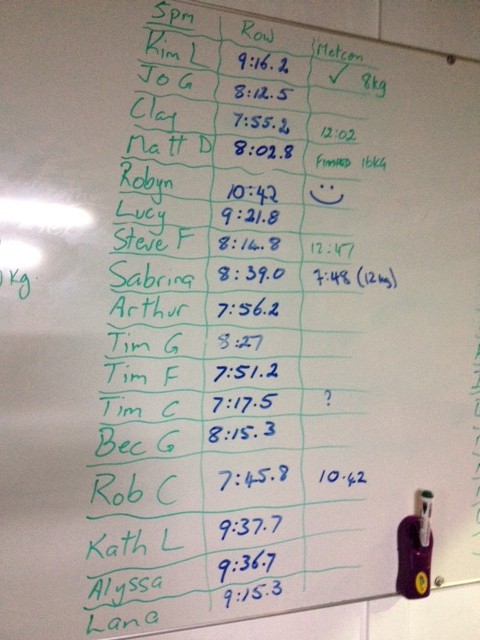 5pm Row Metcon
Kim L 9:16.2 ✓ 8kg
Jo G 8:12.5
Clay 7:55.2 12:02
Matt D 8:02.8 Finished 16kg
Robyn 10:42
Lucy 9:21.8
Steve F 8:14.8 12:47
Sabrina 8:39.0 7:48 (12kg)
Arthur 7:56.2
Tim G 8:27
Tim F 7:51.2
Tim C 7:17.5 ?
Bec G 8:15.3
Rob C 7:45.8 10:42
Kath L 9:37.7
Alyssa 9:36.7
Lana 9:15.3
kg